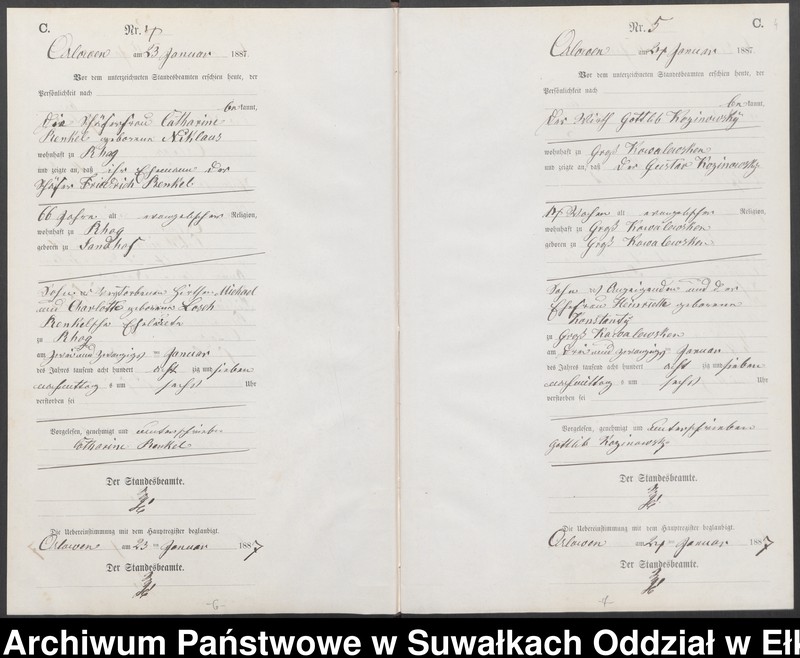 C.
Nr. 4
Orlowen am 23 Januar 1887.
Vor dem unterzeichneten Standesbeamten erschien heute, der
Persönlichkeit nach
bekannt,
Die Schäferfrau Catharine
Renkel geborene Niklaus
wohnhaft zu Rhog
und zeigte an, daß ihr Ehemann der
Schäfer Friedrich Renkel
66 Jahre alt evangelischer Religion,
wohnhaft zu Rhog
geboren zu Sandhof
Sohn verstorbenen Hirten Michael
und Charlotte geborene Losch
Renkelsche Eheleute
zu Rhog
am zwei und zwanzigsten Januar
des Jahres tausend acht hundert acht zig und sieben
nachmittag s um sechs Uhr
verstorben sei
Vorgelesen, genehmigt und unterschrieben
Catharine Renkel
Der Standesbeamte.
Die Uebereinstimmung mit dem Hauptregister beglaubigt.
Orlowen am 23 ten Januar 1887
Der Standesbeamte.
-6-
C.
Nr. 5
Orlowen am 24 Januar 1887
Vor dem unterzeichneten Standesbeamten erschien heute, der
Persönlichkeit nach
bekannt,
Der Wirth Gottlieb Kozinowsky
wohnhaft zu Groß Kowalewsken
und zeigte an, daß der Gustav Kozinowsky
Wochen alt evangelischer Religion,
wohnhaft zu Groß Kowalewsken
geboren zu Groß Kowalewsken
Sohn des Anzeigenden und der
Ehefrau Henriette geborene
Konstanty
zu Groß Kowalewsken
am drei und zwanzigsten Januar
des Jahres tausend acht hundert acht zig und sieben
nachmittag s um sechs Uhr
verstorben sei
Vorgelesen, genehmigt und unterschrieben
Gottlieb Kozinowsky
Der Standesbeamte.
Die Uebereinstimmung mit dem Hauptregister beglaubigt.
Orlowen am 24 ten Januar 1887
Der Standesbeamte.
Archiwum Państwowe w Suwałkach Oddział w Ełk